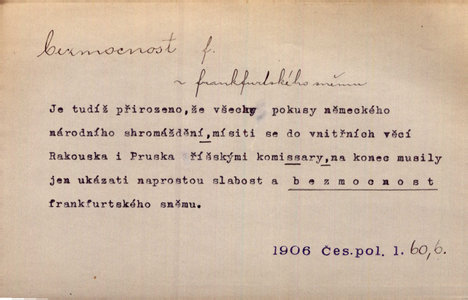 bezmocnost f.
~ frankfurtského sněmu
Je tudíž přirozeno, že všechy pokusy německého
národního shromáždění, mísiti se do vnitřních věcí
Rakouska i Pruska říšskými komissary, na konec musily
jen ukázati naprostou slabost a bezmocnost
frankfurtského sněmu.
1906 Čes. pol. 1. 60,6.